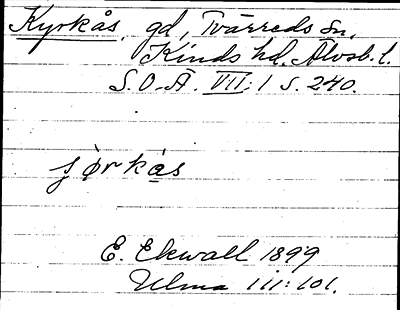 Kyrkås, gd, Tvärreds sn,
Kinds hd. Älvsb. l.
S.O.Ä. VII:1 s. 240.
E. Ekwall 1899
Ulma 111:101.